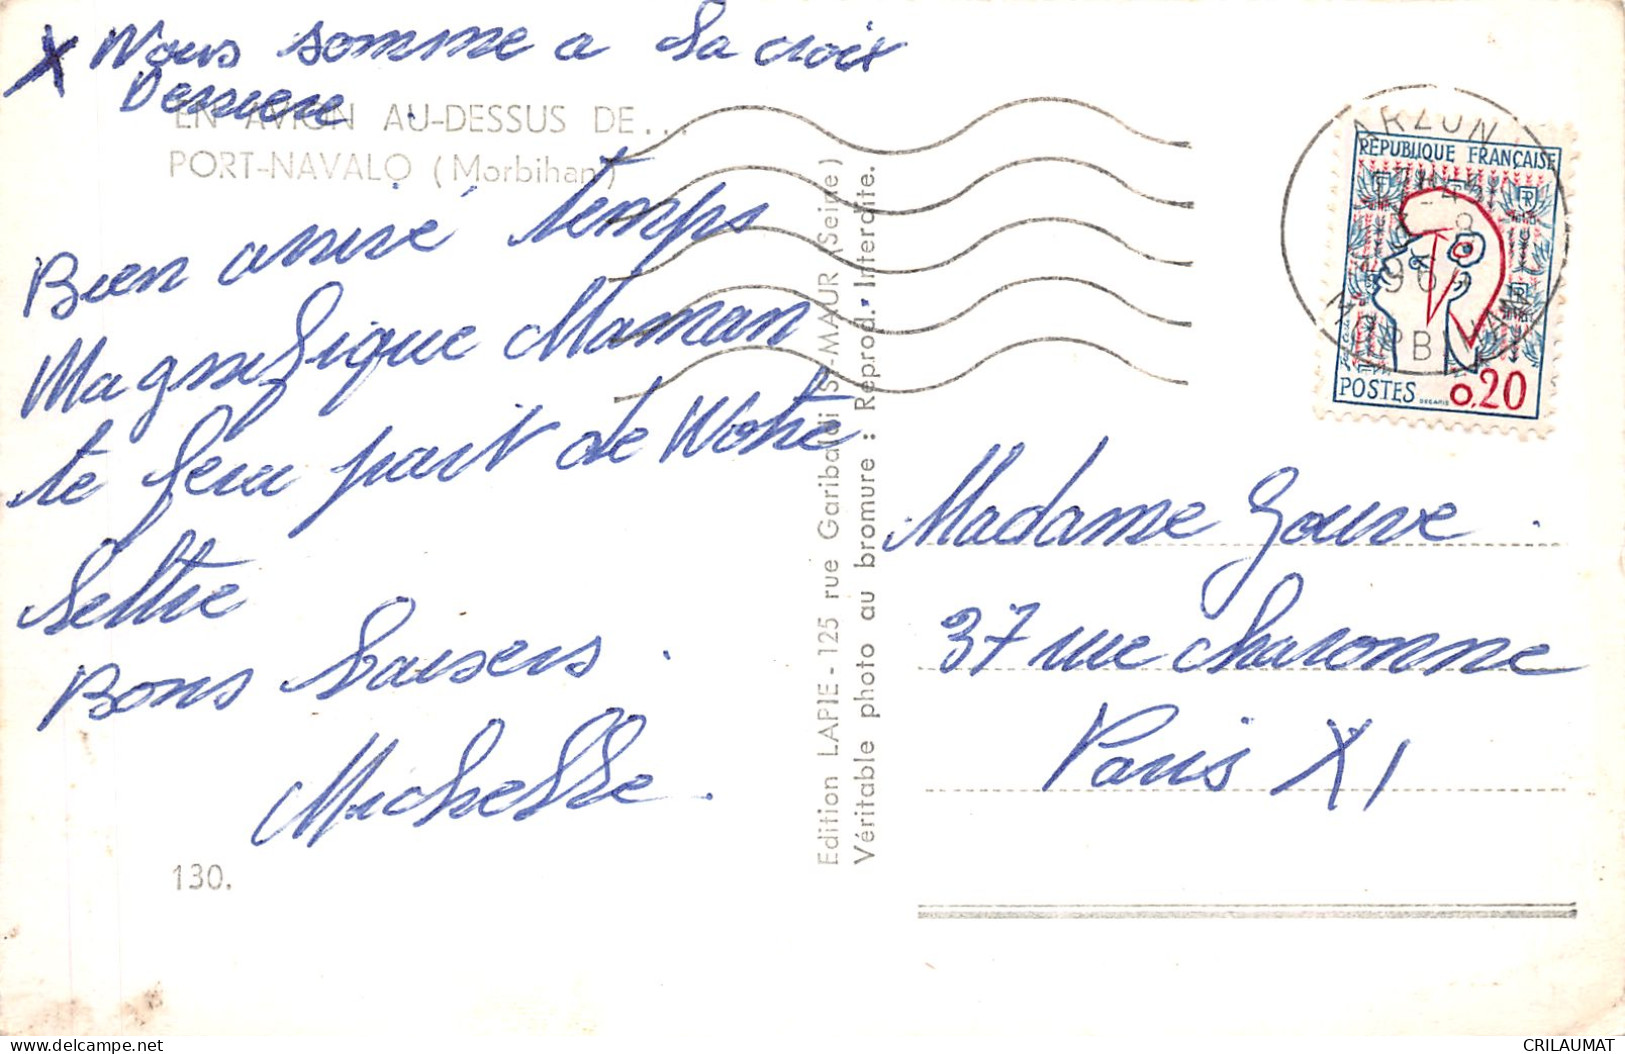 X Nous somme a La croix
Derriere
EN AVION AU-DESSUS DE...
PORT-NAVALO (Morbihan)
Bien arrivé temps
Magnifique Maman
te fera part de Notre
Lettre
Bons baisers.
Michelle.
130.
Edition LAPIE - 125 rue Garibaldi St-MAUR (Seine)
Véritable photo au bromure : Reprod. Interdite.
ARZON
MORBIHAN
RÉPUBLIQUE FRANÇAISE
RF
POSTES
DECARIS
0,20
Madame Gouve.
37 rue charonne
Paris XI
CRILAUMAT